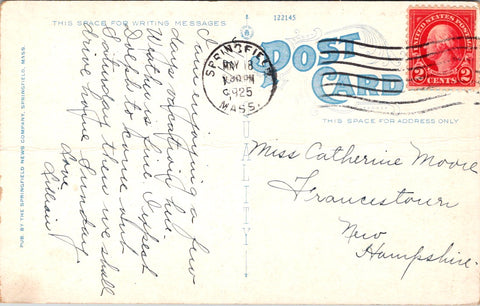 THIS SPACE FOR WRITING MESSAGES
122145
POST
CARD
THIS SPACE FOR ADDRESS ONLY
SPRINGFIELD
MAY 18
1925
MASS.
UNITED STATES POSTAGE
2 CENTS 2
I am enjoying a few
days vacation here
Weather is fine I expect
Doed to come out
Saturday then we shall
drive home Sunday.
Love
Lillian
Miss Catherine Moore
Francestown
New
Hampshire.
PUB. BY THE SPRINGFIELD NEWS COMPANY, SPRINGFIELD, MASS.